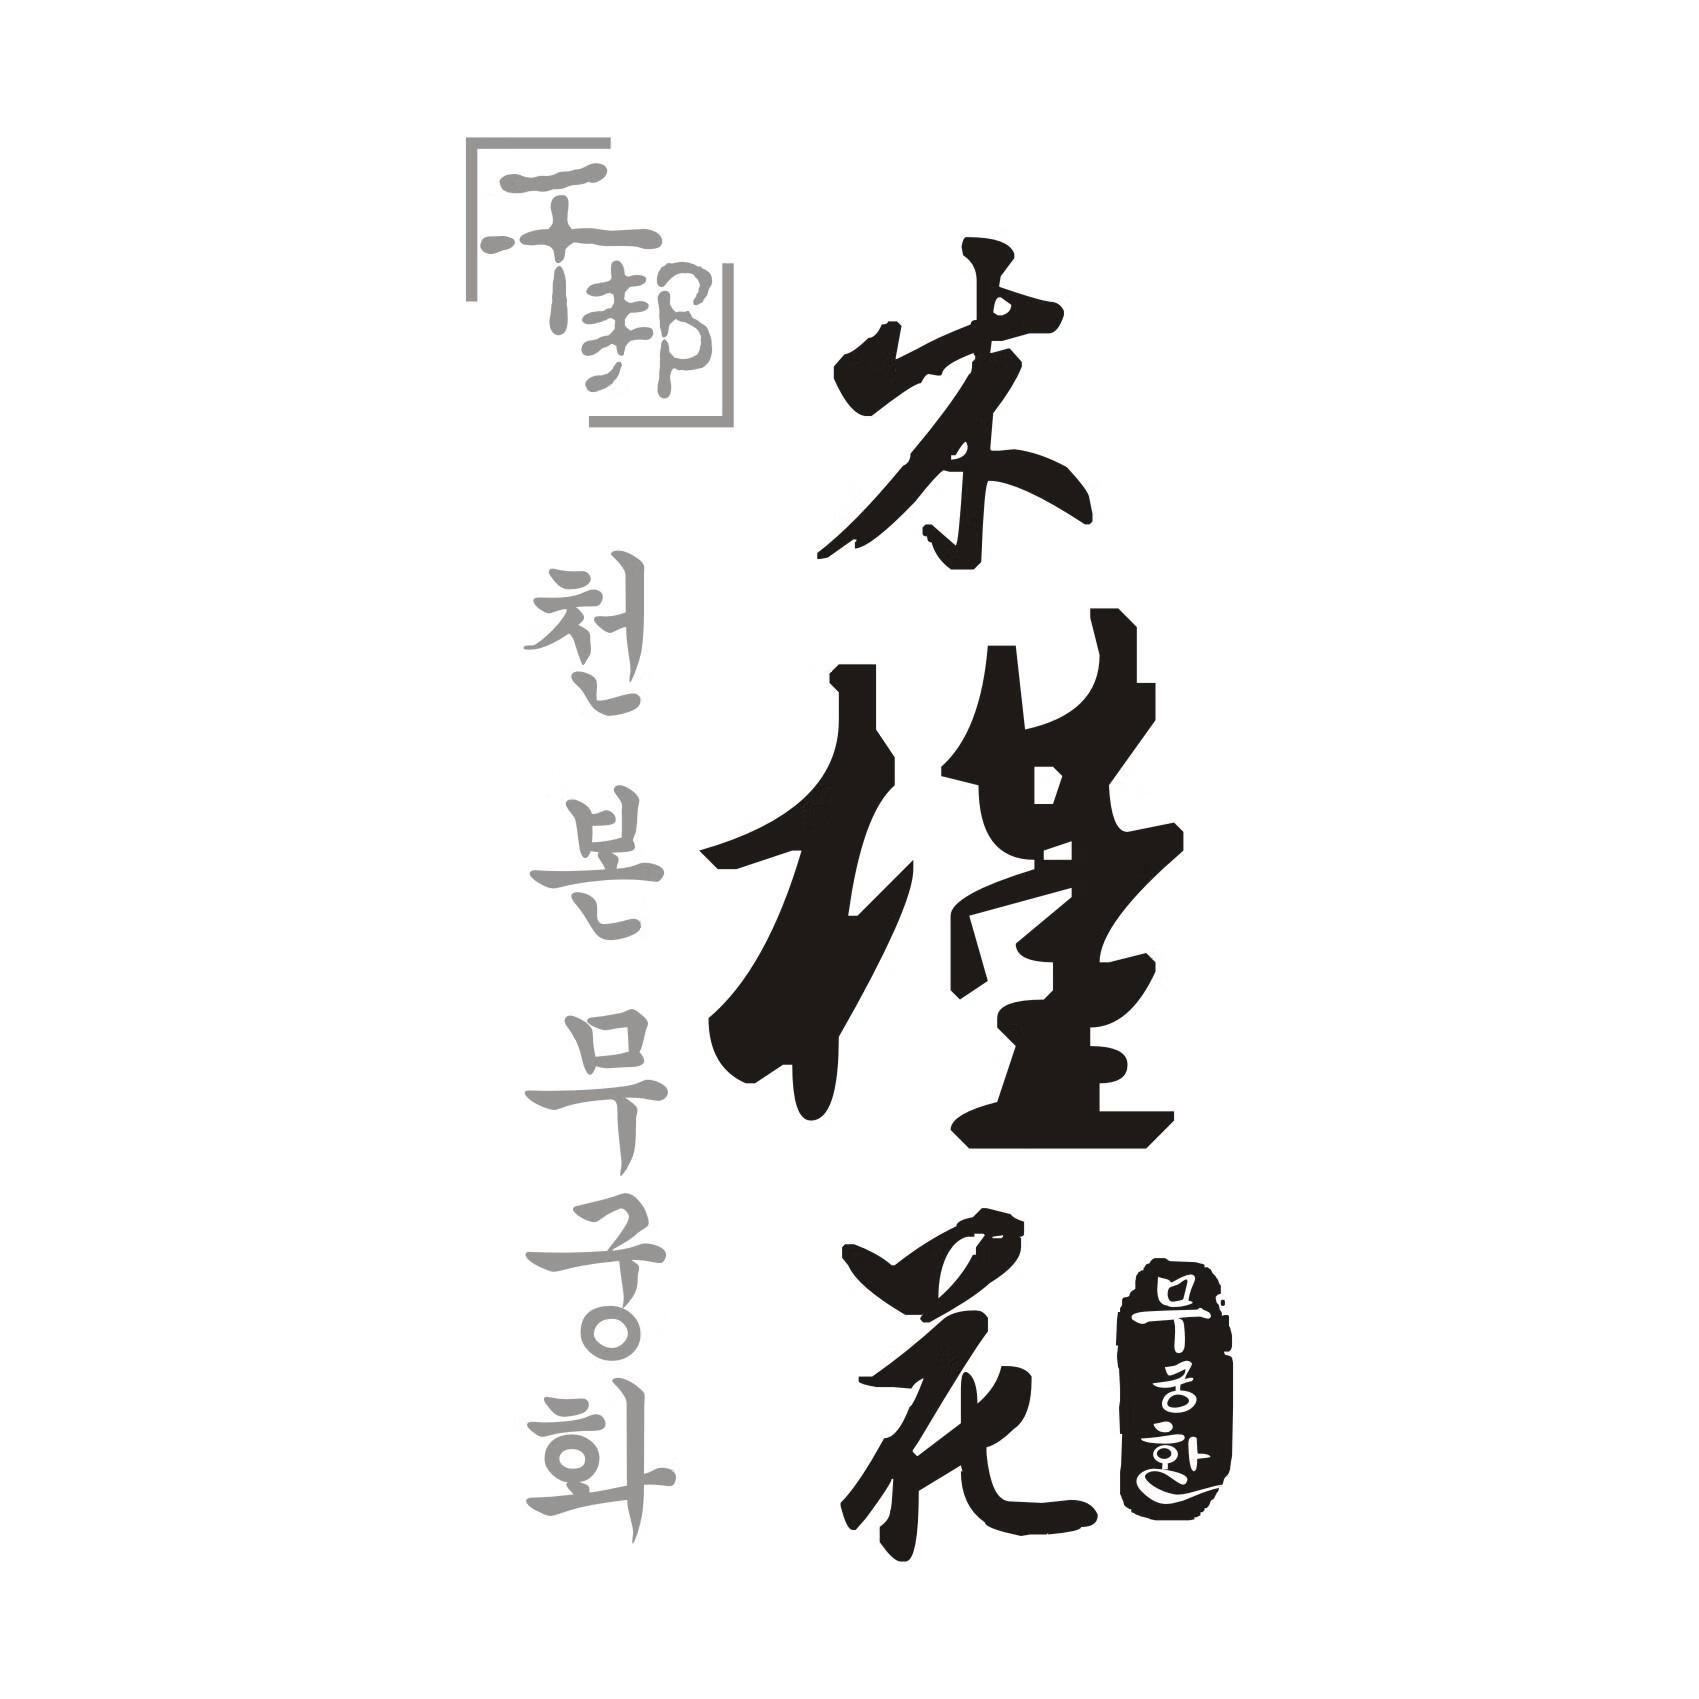 千邦
천본무궁화
木槿花
무궁화